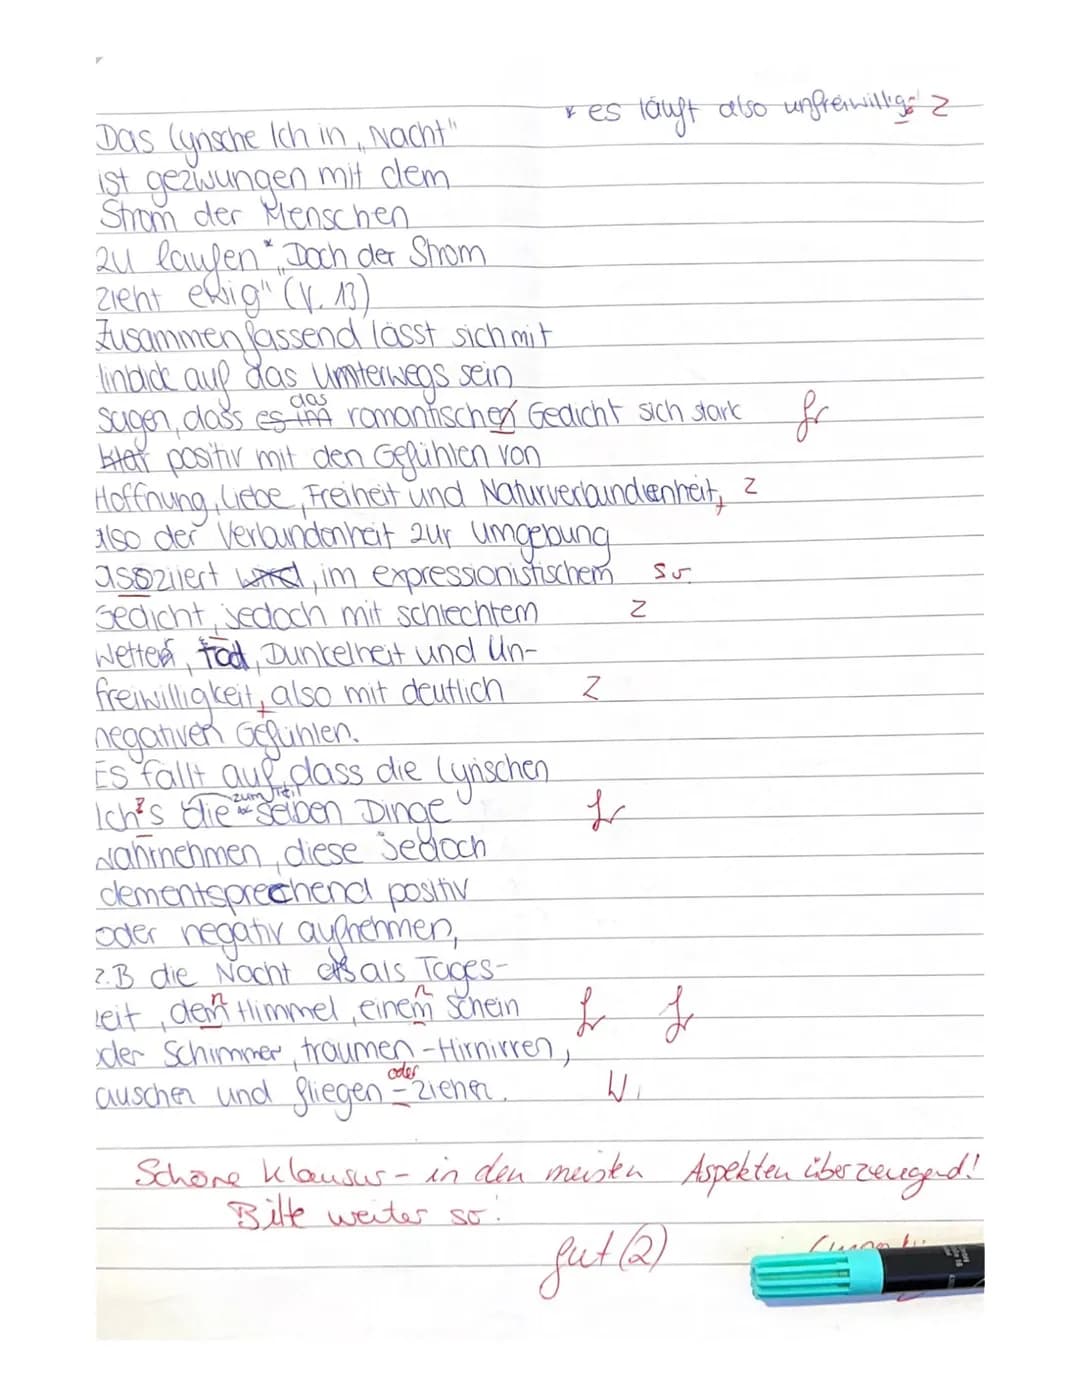 * es läuft also unfreiwillig. Z
Das lyrische Ich in „Nacht"
ist gezwungen mit dem
Strom der Menschen
zu laufen* „Doch der Strom
zieht ewig" (V. 13)
Zusammenfassend lässt sich mit
inblick auf das Unterwegs sein
sagen, dass es im das romantischen Gedicht sich stark fr
klar positiv mit den Gefühlen von
Hoffnung, Liebe, Freiheit und Naturverbundenheit, Z
also der Verbundenheit zur Umgebung
asoziiert wird, im expressionistischem
Gedicht, jedoch mit schlechtem Z
Wetter, Tod, Dunkelheit und Un-
freiwilligkeit, also mit deutlich Z
negativen Gefühlen.
Es fällt auf, dass die lyrischen
Ich's die zum Teil selben Dinge fr
wahrnehmen, diese jedoch
dementsprechend positiv
oder negativ aufnehmen,
z.B die Nacht als Tages-
zeit, dem n Himmel, einem n Schein fr fr
oder Schimmer, träumen - Hirnirren,
auschen und fliegen - oder ziehen. W
Schöne Klausur - in den meisten Aspekten überzeugend!
Bitte weiter so!
gut (2)